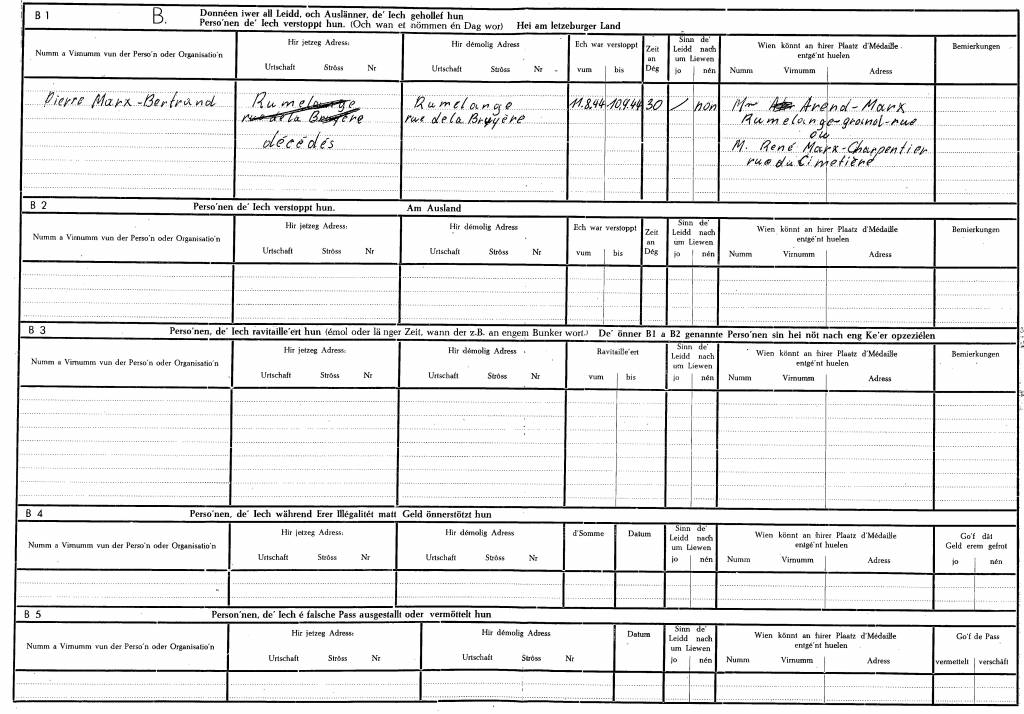 B 1 B. Donnéen iwer all Leidd, och Auslänner, de' Iech gehollef hun
Perso'nen de' Iech verstoppt hun. (Och wan et nömmen én Dag wor) Hei am letzeburger Land
Numm a Virnumm vun der Perso'n oder Organisatio'n
Hir jetzeg Adress:
Urtschaft Ströss Nr
Hir démolig Adress
Urtschaft Ströss Nr
Ech war verstoppt
vum bis
Zeit
an
Dég
Sinn de'
Leidd nach
um Liewen
jo nén
Wien könnt an hirer Plaatz d'Médaille
entgé'nt huelen
Numm Virnumm Adress
Bemierkungen
Pierre Marx-Bertrand
Rumelange
rue de la Bruyère
décédés
Rumelange
rue de la Bruyère
11.8.44 10.9.44 30 / non
Mme Arend-Marx
Rumelange-grand-rue
ou
M. René Marx-Charpentier
rue du Cimetière
B 2 Perso'nen de' Iech verstoppt hun. Am Ausland
Numm a Virnumm vun der Perso'n oder Organisatio'n
Hir jetzeg Adress:
Urtschaft Ströss Nr
Hir démolig Adress
Urtschaft Ströss Nr
Ech war verstoppt
vum bis
Zeit
an
Dég
Sinn de'
Leidd nach
um Liewen
jo nén
Wien könnt an hirer Plaatz d'Médaille
entgé'nt huelen
Numm Virnumm Adress
Bemierkungen
B 3 Perso'nen, de' Iech ravitaille'ert hun (émol oder länger Zeit, wann der z.B. an engem Bunker wort.) De' önner B1 a B2 genannte Perso'nen sin hei nöt nach eng Ke'er opzeziélen
Numm a Virnumm vun der Perso'n oder Organisatio'n
Hir jetzeg Adress:
Urtschaft Ströss Nr
Hir démolig Adress
Urtschaft Ströss Nr
Ravitaille'ert
vum bis
Sinn de'
Leidd nach
um Liewen
jo nén
Wien könnt an hirer Plaatz d'Médaille
entgé'nt huelen
Numm Virnumm Adress
Bemierkungen
B 4 Perso'nen, de' Iech während Erer Illégalitét matt Geld önnerstötzt hun
Numm a Virnumm vun der Perso'n oder Organisatio'n
Hir jetzeg Adress:
Urtschaft Ströss Nr
Hir démolig Adress
Urtschaft Ströss Nr
d'Somme
Datum
Sinn de'
Leidd nach
um Liewen
jo nén
Wien könnt an hirer Plaatz d'Médaille
entgé'nt huelen
Numm Virnumm Adress
Go'f dát
Geld erem gefrot
jo nén
B 5 Person'nen, de' Iech é falsche Pass ausgestallt oder vermöttelt hun
Numm a Virnumm vun der Perso'n oder Organisatio'n
Hir jetzeg Adress:
Urtschaft Ströss Nr
Hir démolig Adress
Urtschaft Ströss Nr
Datum
Sinn de'
Leidd nach
um Liewen
jo nén
Wien könnt an hirer Plaatz d'Médaille
entgé'nt huelen
Numm Virnumm Adress
Go'f de Pass
vermettelt verschäft